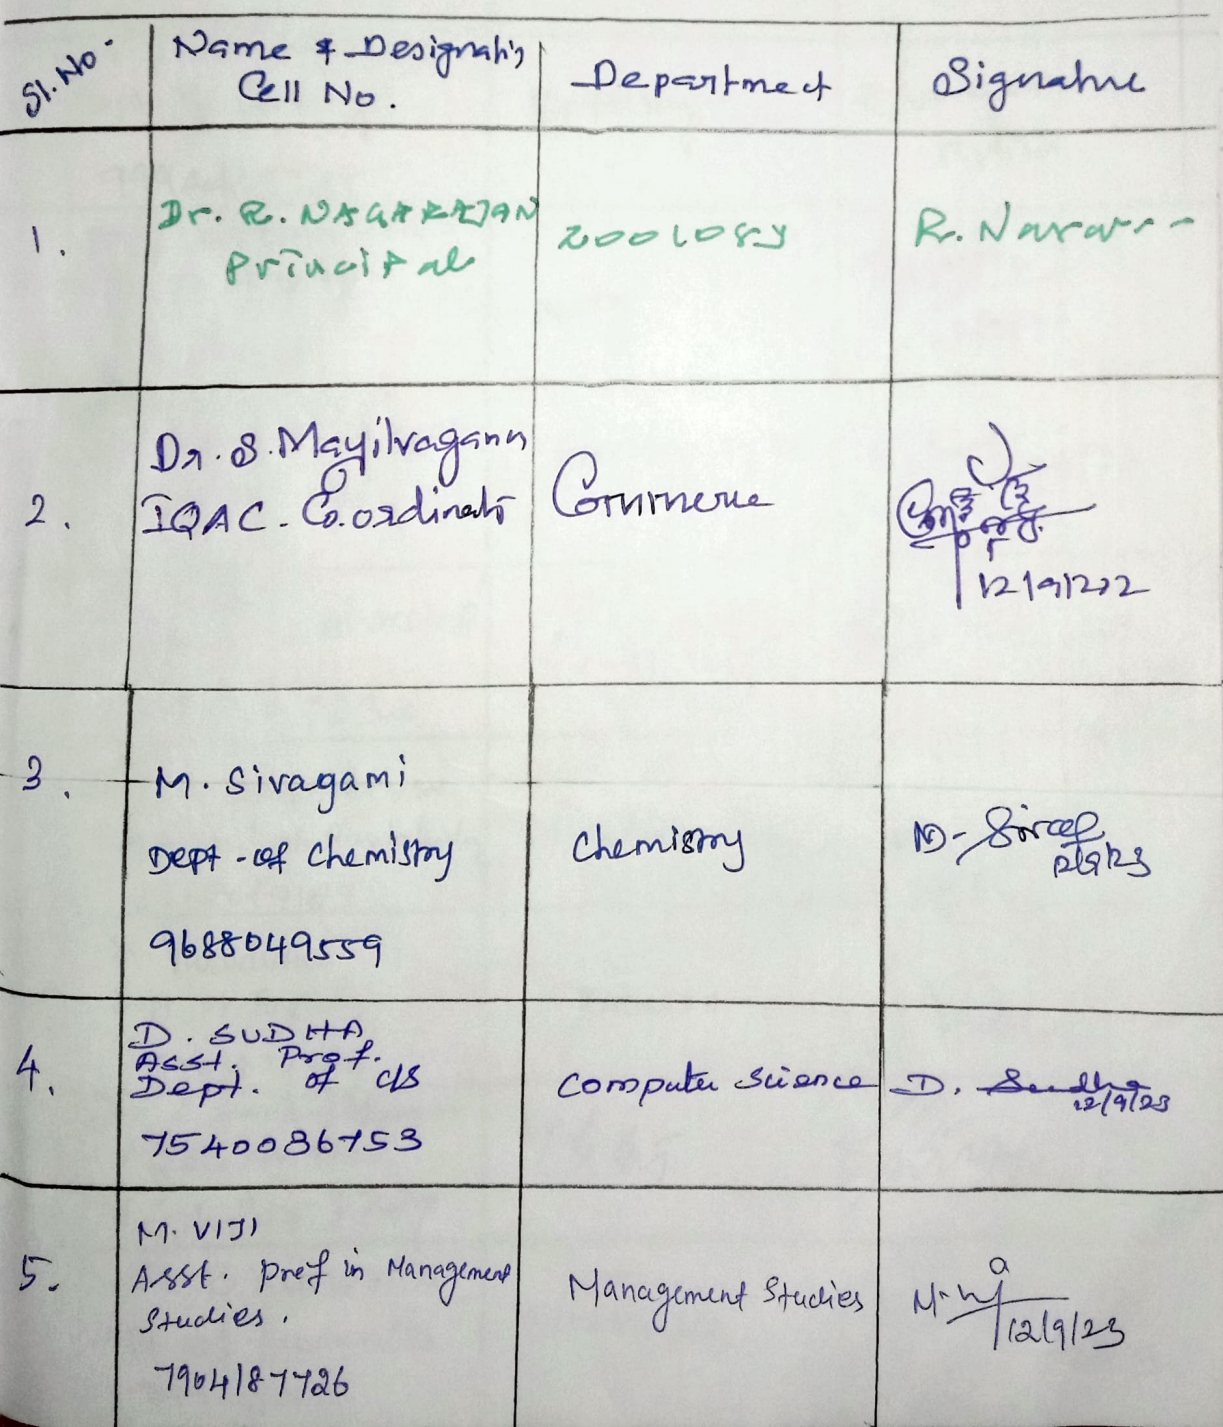 Sl. No.
Name & Designatin
Cell No.
Department
Signature
1.
Dr. R. NAGARAJAN
Principal
Zoology
R. Nagara
2.
Dr. S. Mayilvaganan
IQAC - Co.ordinator
Commerce
3.
M. Sivagami
Dept - of Chemistry
9688049559
Chemistry
M. Sivag
12/9/23
4.
D. SUDHA
Asst. Prof.
Dept. of C/S
7540086753
Computer Science
D. Sudha
12/9/23
5.
M. VIJI
Asst. Prof in Management
Studies.
7904187726
Management Studies
12/9/23